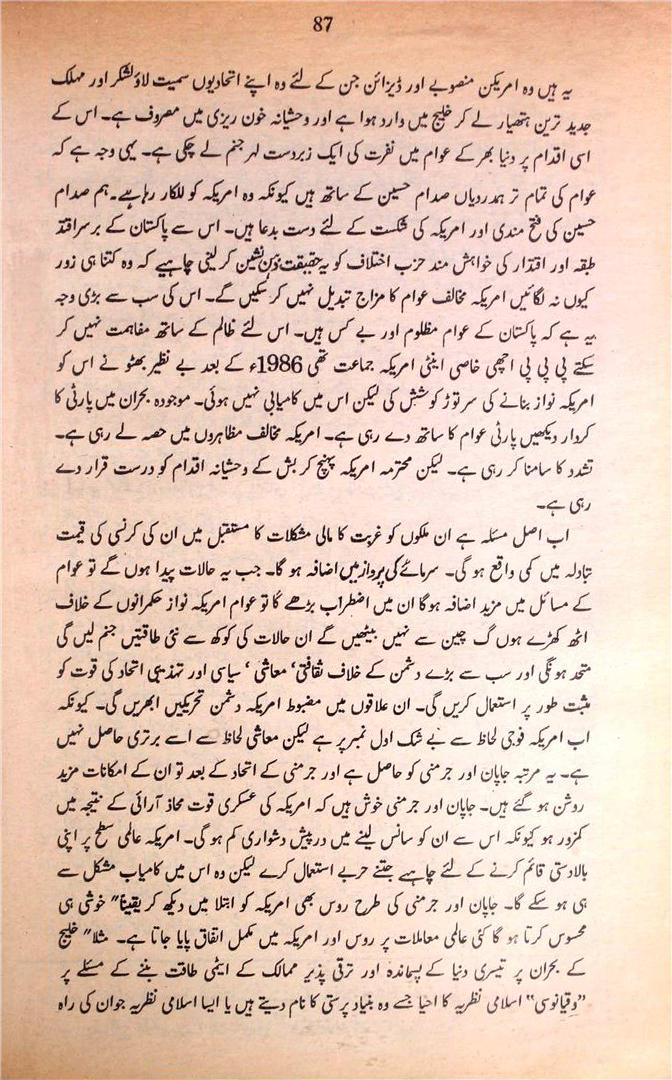 87
یہ ہیں وہ امریکن منصوبے اور ڈیزائن جن کے لئے وہ اپنے اتحادیوں سمیت لاؤ لشکر اور مہلک
جدید ترین ہتھیار لے کر خلیج میں وارد ہوا ہے اور وحشیانہ خون ریزی میں مصروف ہے۔ اس کے
اسی اقدام پر دنیا بھر کے عوام میں نفرت کی ایک زبردست لہر جنم لے چکی ہے۔ یہی وجہ ہے کہ
عوام کی تمام تر ہمدردیاں صدام حسین کے ساتھ ہیں کیونکہ وہ امریکہ کو للکار رہا ہے۔ ہم صدام
حسین کی فتح مندی اور امریکہ کی شکست کے لئے دست بدعا ہیں۔ اس سے پاکستان کے برسراقتد
طبقہ اور اقتدار کی خواہش مند حزب اختلاف کو یہ حقیقت ذہن نشین کر لینی چاہیے کہ وہ کتنا ہی زور
کیوں نہ لگائیں امریکہ مخالف عوام کا مزاج تبدیل نہیں کر سکیں گے۔ اس کی سب سے بڑی وجہ
یہ ہے کہ پاکستان کے عوام مظلوم اور بے کس ہیں۔ اس لئے ظالم کے ساتھ مفاہمت نہیں کر
سکتے پی پی پی اچھی خاصی اینٹی امریکہ جماعت تھی 1986ء کے بعد بے نظیر بھٹو نے اس کو
امریکہ نواز بنانے کی سر توڑ کوشش کی لیکن اس میں کامیابی نہیں ہوئی۔ موجودہ بحران میں پارٹی کا
کردار دیکھیں پارٹی عوام کا ساتھ دے رہی ہے۔ امریکہ مخالف مظاہروں میں حصہ لے رہی ہے۔
تشدد کا سامنا کر رہی ہے۔ لیکن محترمہ امریکہ پہنچ کر بش کے وحشیانہ اقدام کو درست قرار دے
رہی ہے۔
اب اصل مسئلہ ہے ان ملکوں کو غربت کا مالی مشکلات کا مستقبل میں ان کی کرنسی کی قیمت
تبادلہ میں کمی واقع ہو گی۔ سرمائے کی پرواز میں اضافہ ہو گا۔ جب یہ حالات پیدا ہوں گے تو عوام
کے مسائل میں مزید اضافہ ہوگا ان میں اضطراب بڑھے گا تو عوام امریکہ نواز حکمرانوں کے خلاف
اٹھ کھڑے ہوں گ چین سے نہیں بیٹھیں گے ان حالات کی کوکھ سے نئی طاقتیں جنم لیں گی
متحد ہونگی اور سب سے بڑے دشمن کے خلاف ثقافتی‘ معاشی‘ سیاسی اور تہذیبی اتحاد کی قوت کو
مثبت طور پر استعمال کریں گی۔ ان علاقوں میں مضبوط امریکہ دشمن تحریکیں ابھریں گی۔ کیونکہ
اب امریکہ فوجی لحاظ سے بے شک اول نمبر پر ہے لیکن معاشی لحاظ سے اسے برتری حاصل نہیں
ہے۔ یہ مرتبہ جاپان اور جرمنی کو حاصل ہے اور جرمنی کے اتحاد کے بعد تو ان کے امکانات مزید
روشن ہو گئے ہیں۔ جاپان اور جرمنی خوش ہیں کہ امریکہ کی عسکری قوت محاذ آرائی کے نتیجہ میں
کمزور ہو کیونکہ اس سے ان کو سانس لینے میں درپیش دشواری کم ہو گی۔ امریکہ عالمی سطح پر اپنی
بالادستی قائم کرنے کے لئے چاہیے جتنے حربے استعمال کرے لیکن وہ اس میں کامیاب مشکل سے
ہی ہو سکے گا۔ جاپان اور جرمنی کی طرح روس بھی امریکہ کو ابتلا میں دیکھ کر یقیناً" خوشی ہی
محسوس کرتا ہو گا کئی عالمی معاملات پر روس اور امریکہ میں مکمل اتفاق پایا جاتا ہے۔ مثلا" خلیج
کے بحران پر تیسری دنیا کے پسماندہ اور ترقی پذیر ممالک کے ایٹمی طاقت بننے کے مسئلے پر
"دقیانوسی" اسلامی نظریہ کا احیا جسے وہ بنیاد پرستی کا نام دیتے ہیں یا ایسا اسلامی نظریہ جو ان کی راہ